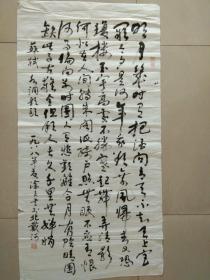 明月几时有把酒问青天不知天上宫
阙今夕是何年我欲乘风归去又恐
琼楼玉宇高处不胜寒起舞弄清影
何似在人间转朱阁低绮户照无眠不应有恨
何事长向别时圆人有悲欢离合月有阴晴圆
缺此事古难全但愿人长久千里共婵娟
苏轼水调歌头 一九八 年夏 于北戴河